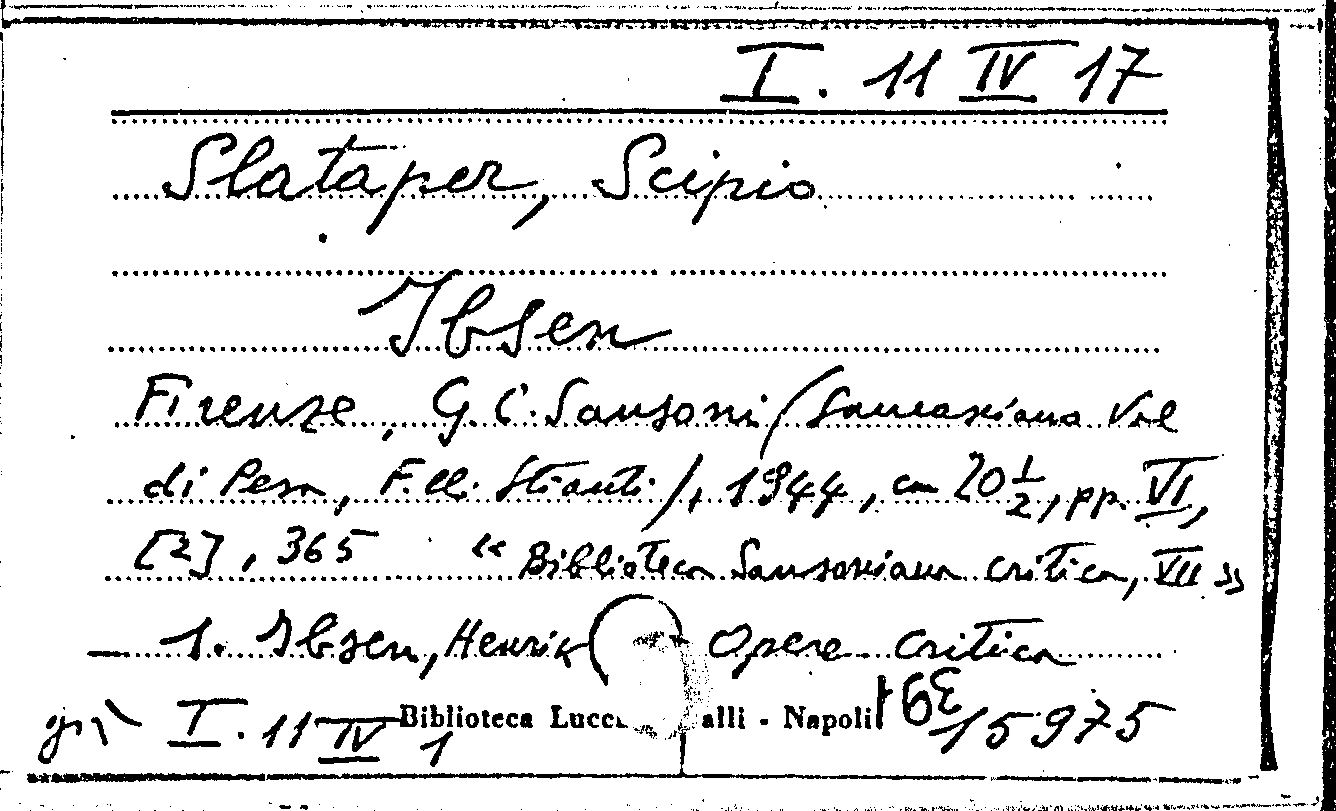 I. 11 IV 17
Slataper, Scipio
Ibsen
Firenze, G. C. Sansoni (Sancasciano Val
di Pesa, F.lli. Stianti), 1944, cm 20 1/2, pp. VI,
[2], 365 « Biblioteca Sansoniana critica, VII »
— 1. Ibsen, Henrik Opere critica
già I. 11 IV 1 Biblioteca Lucc alli - Napoli 15975